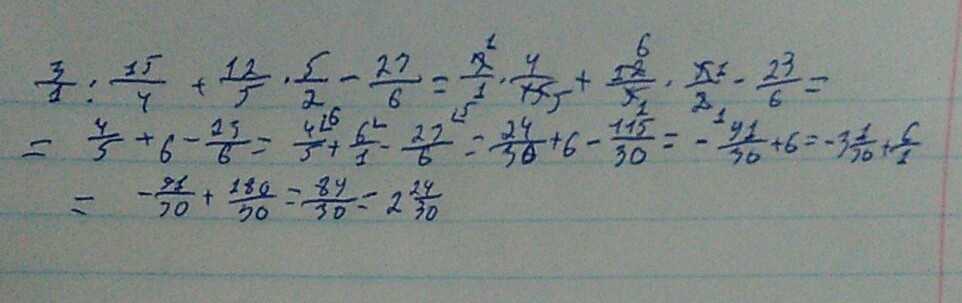 3/1 : 15/4 + 12/5 · 5/2 - 27/6 = 3¹/1 · 4/15 5 + 12 6/5 1 · 5 1/2 1 - 23/6 =
= 4/5 + 6 - 23/6 = 4⌊6/5 + 6⌊/1 - 27⌊5/6 = 24/30 + 6 - 115/30 = - 91/30 + 6 = -3 1/30 + 6/1
= - 91/30 + 180/30 = 89/30 = 2 29/30